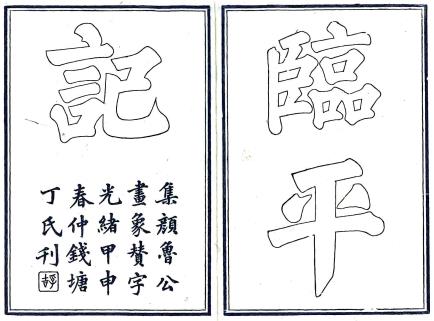 臨平
記
集顔魯公
畫象賛字
光緒甲申
春仲錢塘
丁氏刊